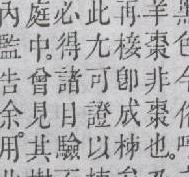 棗非棗也
再接卽成柹
此尢可證以
必得諸目驗
庭中曾見其
內監告余用